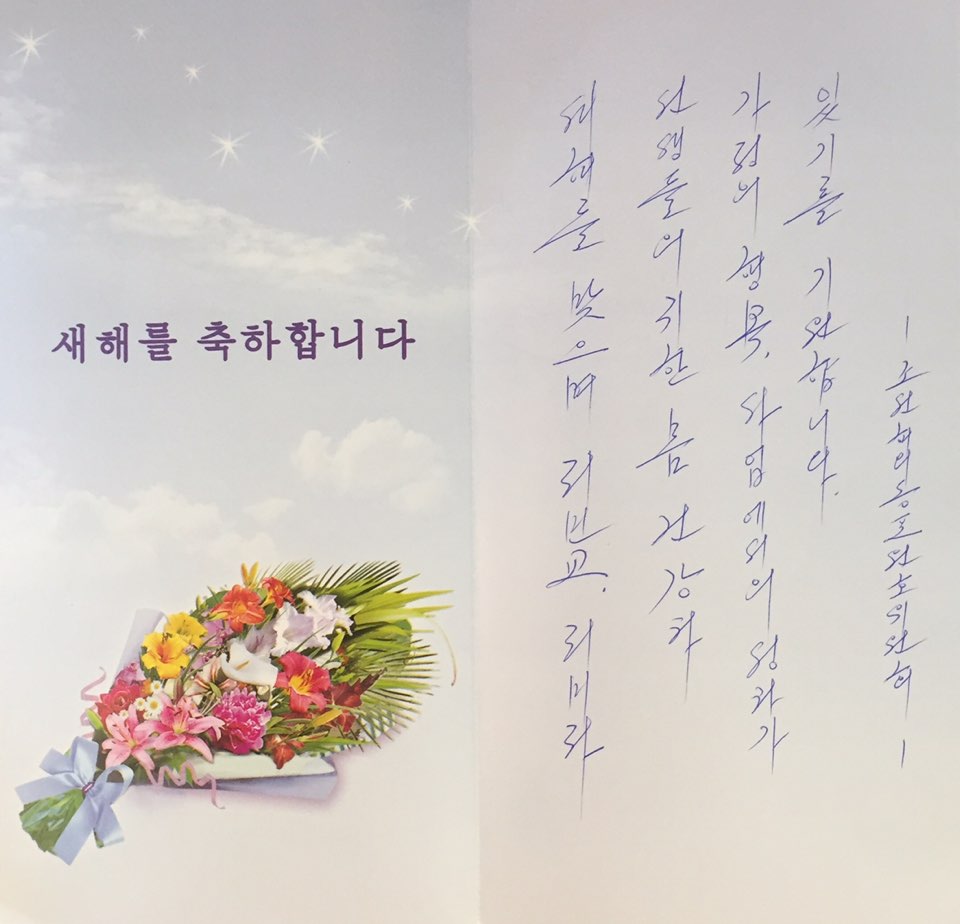 새해를 축하합니다
새해를 맞으며 리민교, 리미라
선생들의 귀한 몸 건강과
가정의 행복, 사업에서의 성과가
있기를 기원합니다.
– 조선해외동포원호위원회 –